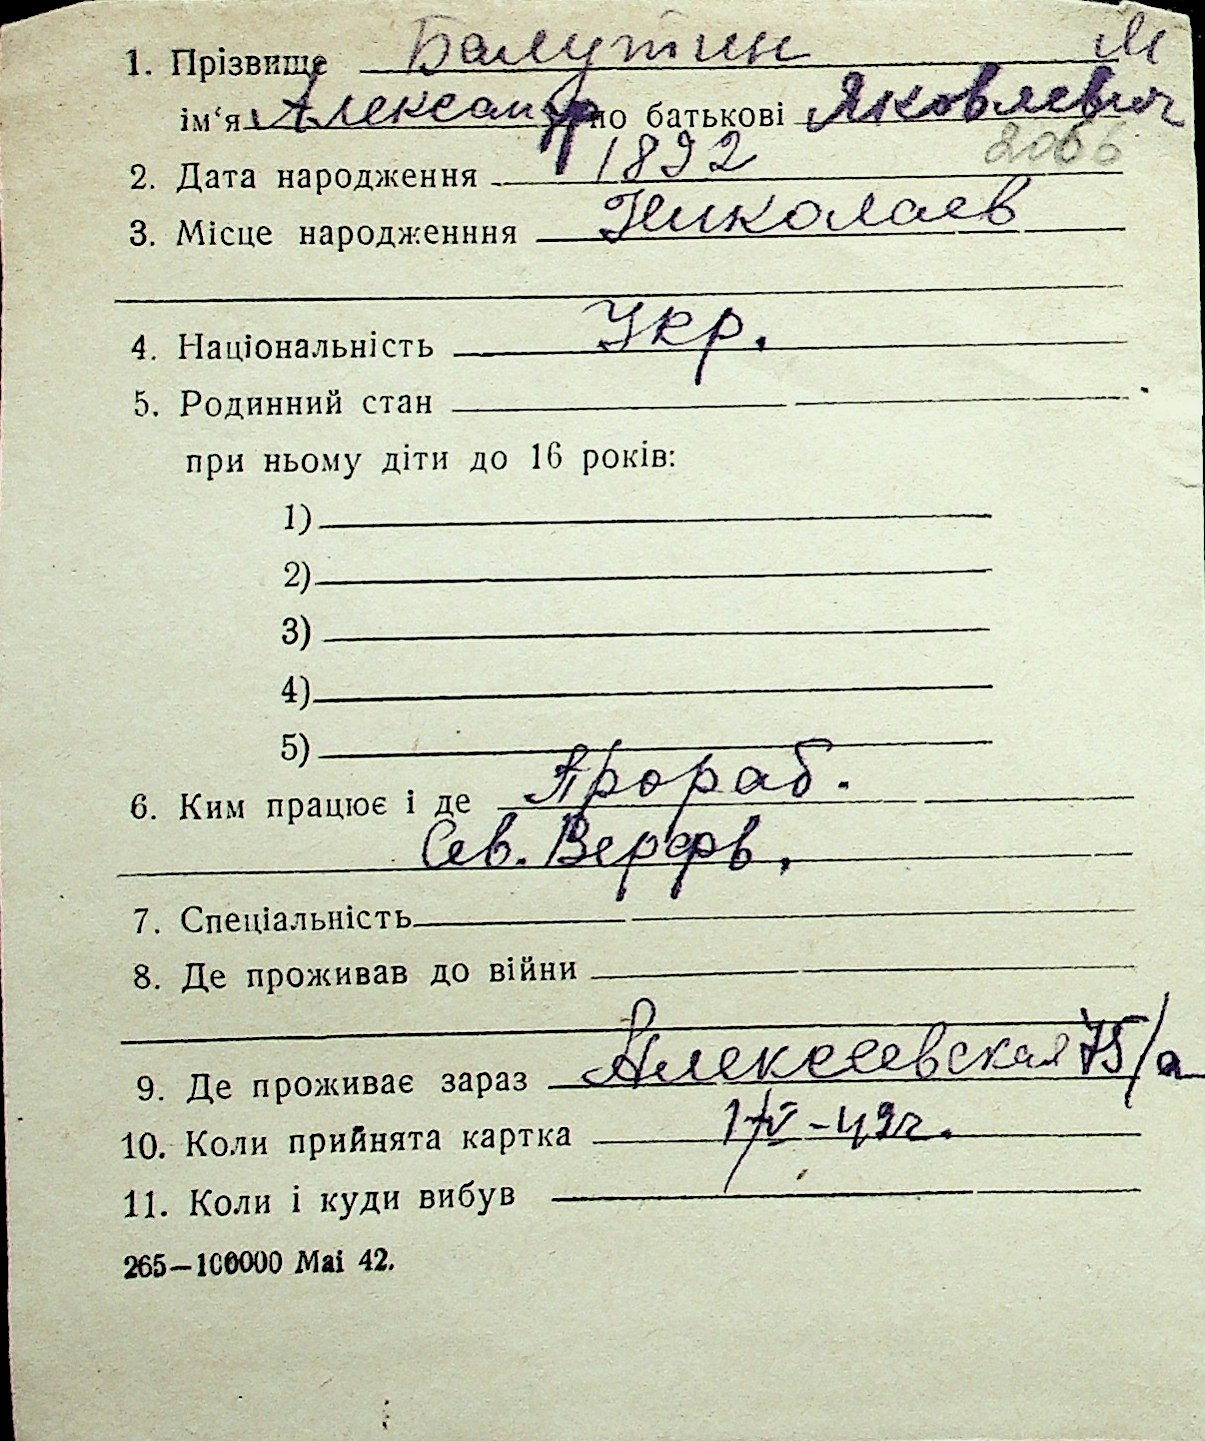 1. Прізвище Балутин М
ім‘я Александр по батькові Яковлевич
2066
2. Дата народження 1892
3. Місце народженння Николаев
4. Національність Укр.
5. Родинний стан
при ньому діти до 16 років:
1)
2)
3)
4)
5)
6. Ким працює і де Прораб.
Сев. Верфь,
7. Спеціальність
8. Де проживав до війни
9. Де проживає зараз Алексеевская 75/а
10. Коли прийнята картка 1/V-42г.
11. Коли і куди вибув
265—100000 Mai 42.